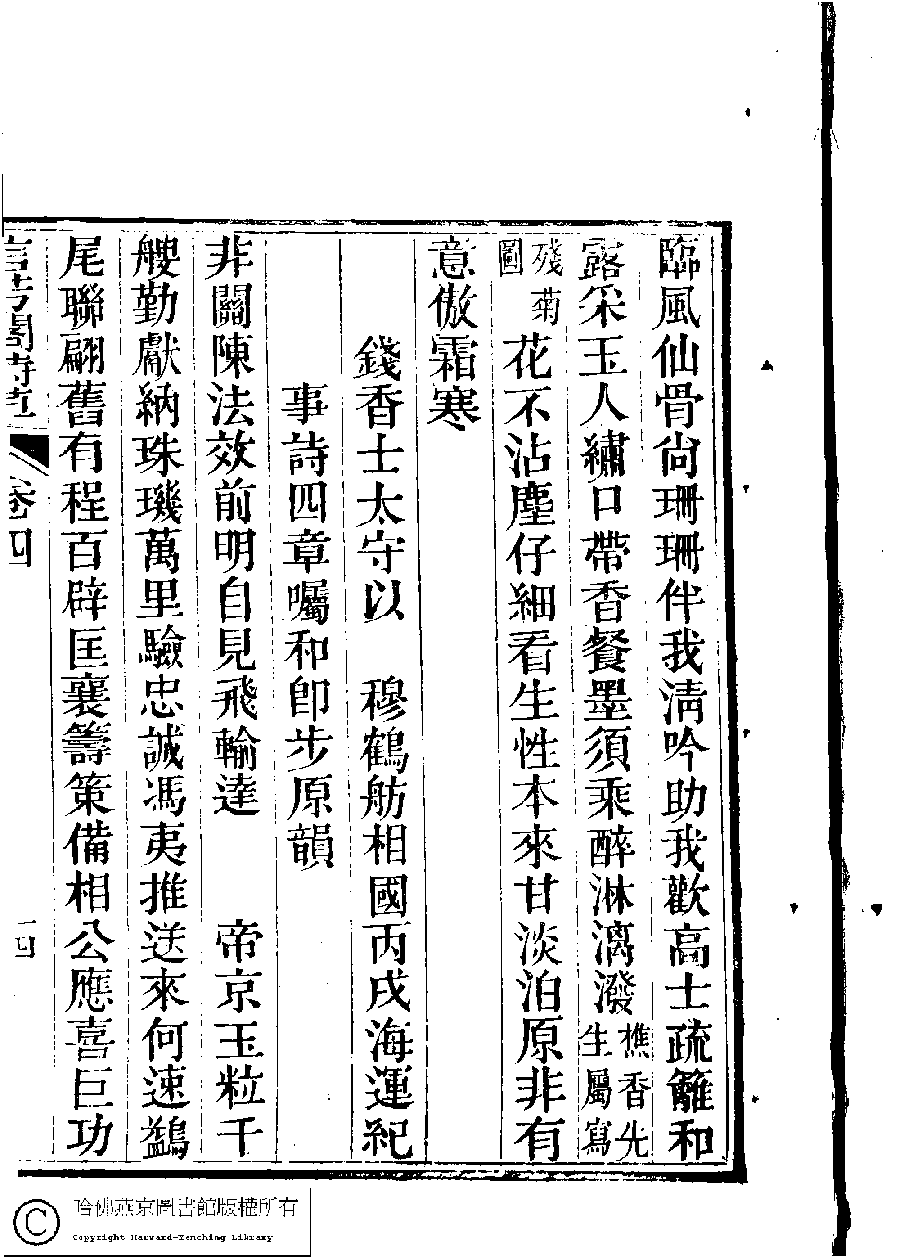 臨風仙骨尙珊珊伴我淸吟助我歡高士疏籬和
露采玉人繡口帶香餐墨須乘醉淋漓潑樵香先生屬寫
殘菊圖花不沾塵仔細看生性本來甘淡泊原非有
意傲霜寒
錢香士太守以　穆鶴舫相國丙戌海運紀
事詩四章囑和卽步原韻
非關陳法效前明自見飛輸達　帝京玉粒千
艘勤獻納珠璣萬里驗忠誠馮夷推送來何速鷁
尾聯翩舊有程百辟匡襄籌策備相公應喜巨功
閣詩　卷四
一四
哈佛燕京圖書館版權所有
Copyright Harvard-Yenching Library